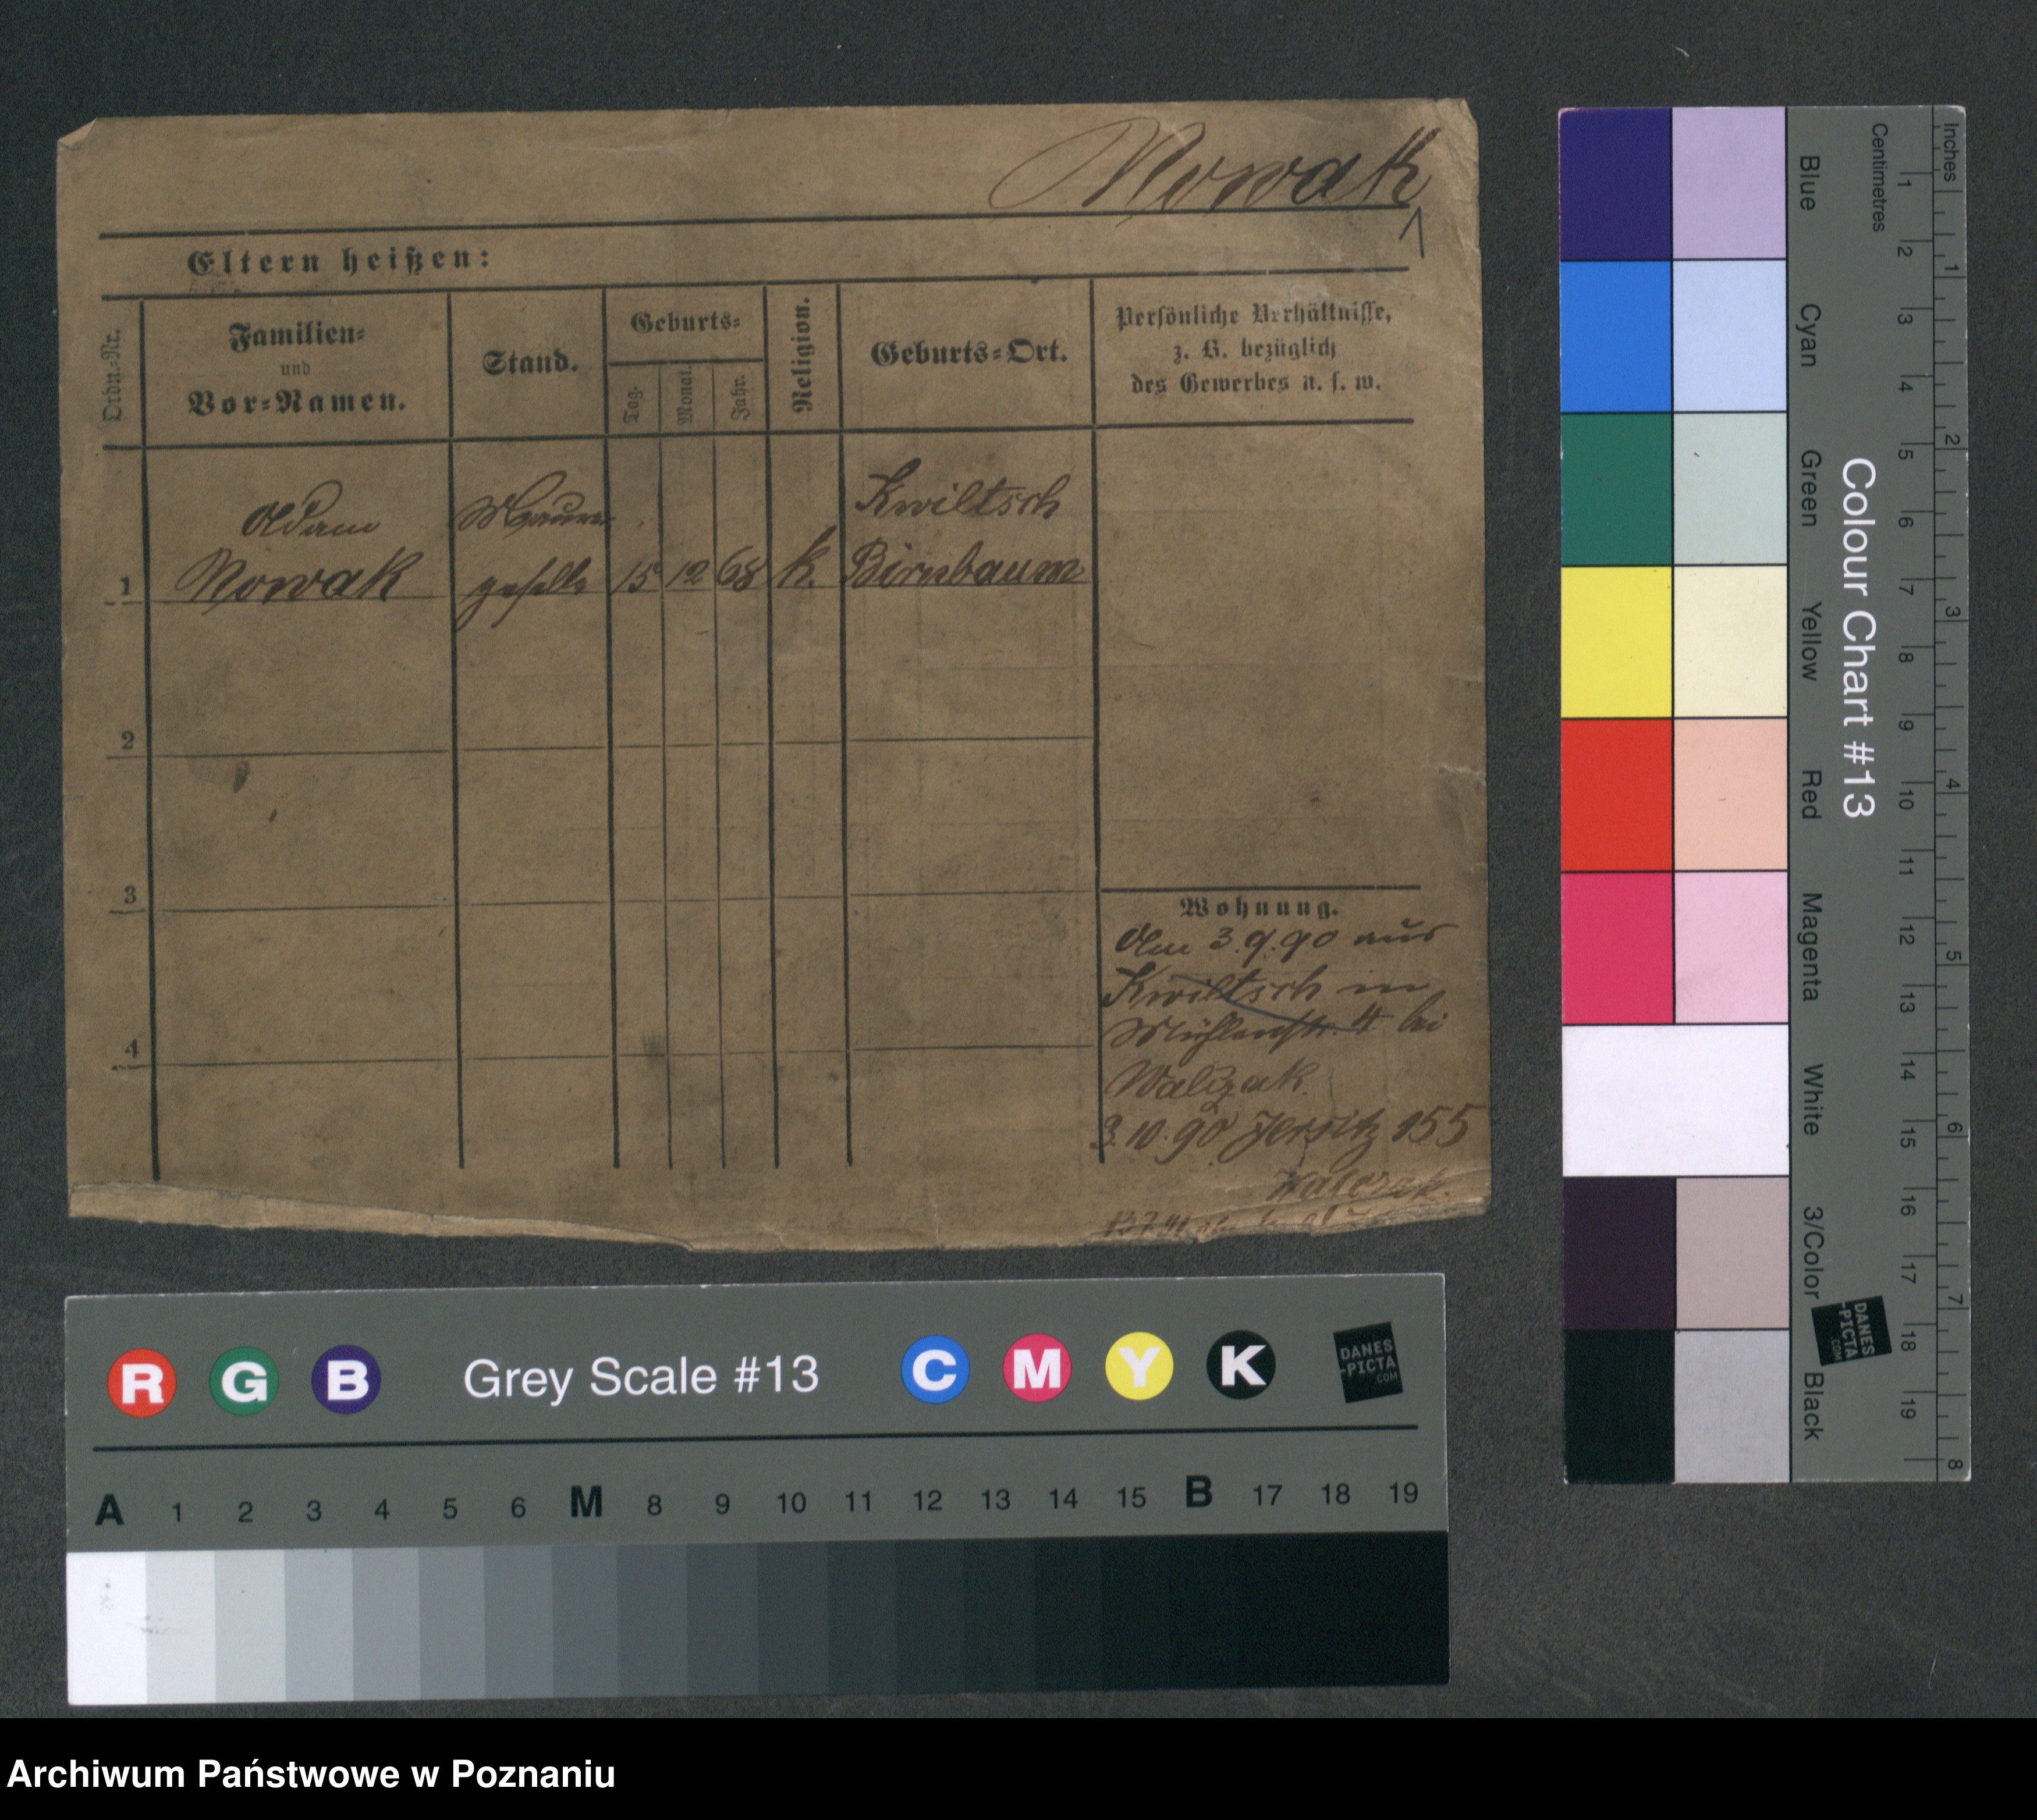 Nowak
1
Eltern heißen:
Ordn.-Nr.
Familien-
und
Vor-Namen.
Stand.
Geburts-
Tag.
Monat.
Jahr.
Religion.
Geburts-Ort.
Persönliche Verhältnisse,
z. B. bezüglich
des Gewerbes u. s. w.
Adam Maurer Kwiltsch
1 Nowak geselle 15 12 68 k. Birnbaum
2
3
4
Wohnung.
Am 3.9.90 aus
Kwiltsch in
Mühlenstr. 4 bei
Walczak.
3.10.90 Jersitz 155
Walczak.
Blue
Cyan
Green
Yellow
Red
Magenta
White
3/Color
Black
Colour Chart #13
Centimetres
1 2 3 4 5 6 7 8 9 10 11 12 13 14 15 16 17 18 19
Inches
1 2 3 4 5 6 7 8
DANES
-PICTA
.COM
R G B Grey Scale #13 C M Y K
DANES
-PICTA
.COM
A 1 2 3 4 5 6 M 8 9 10 11 12 13 14 15 B 17 18 19
Archiwum Państwowe w Poznaniu